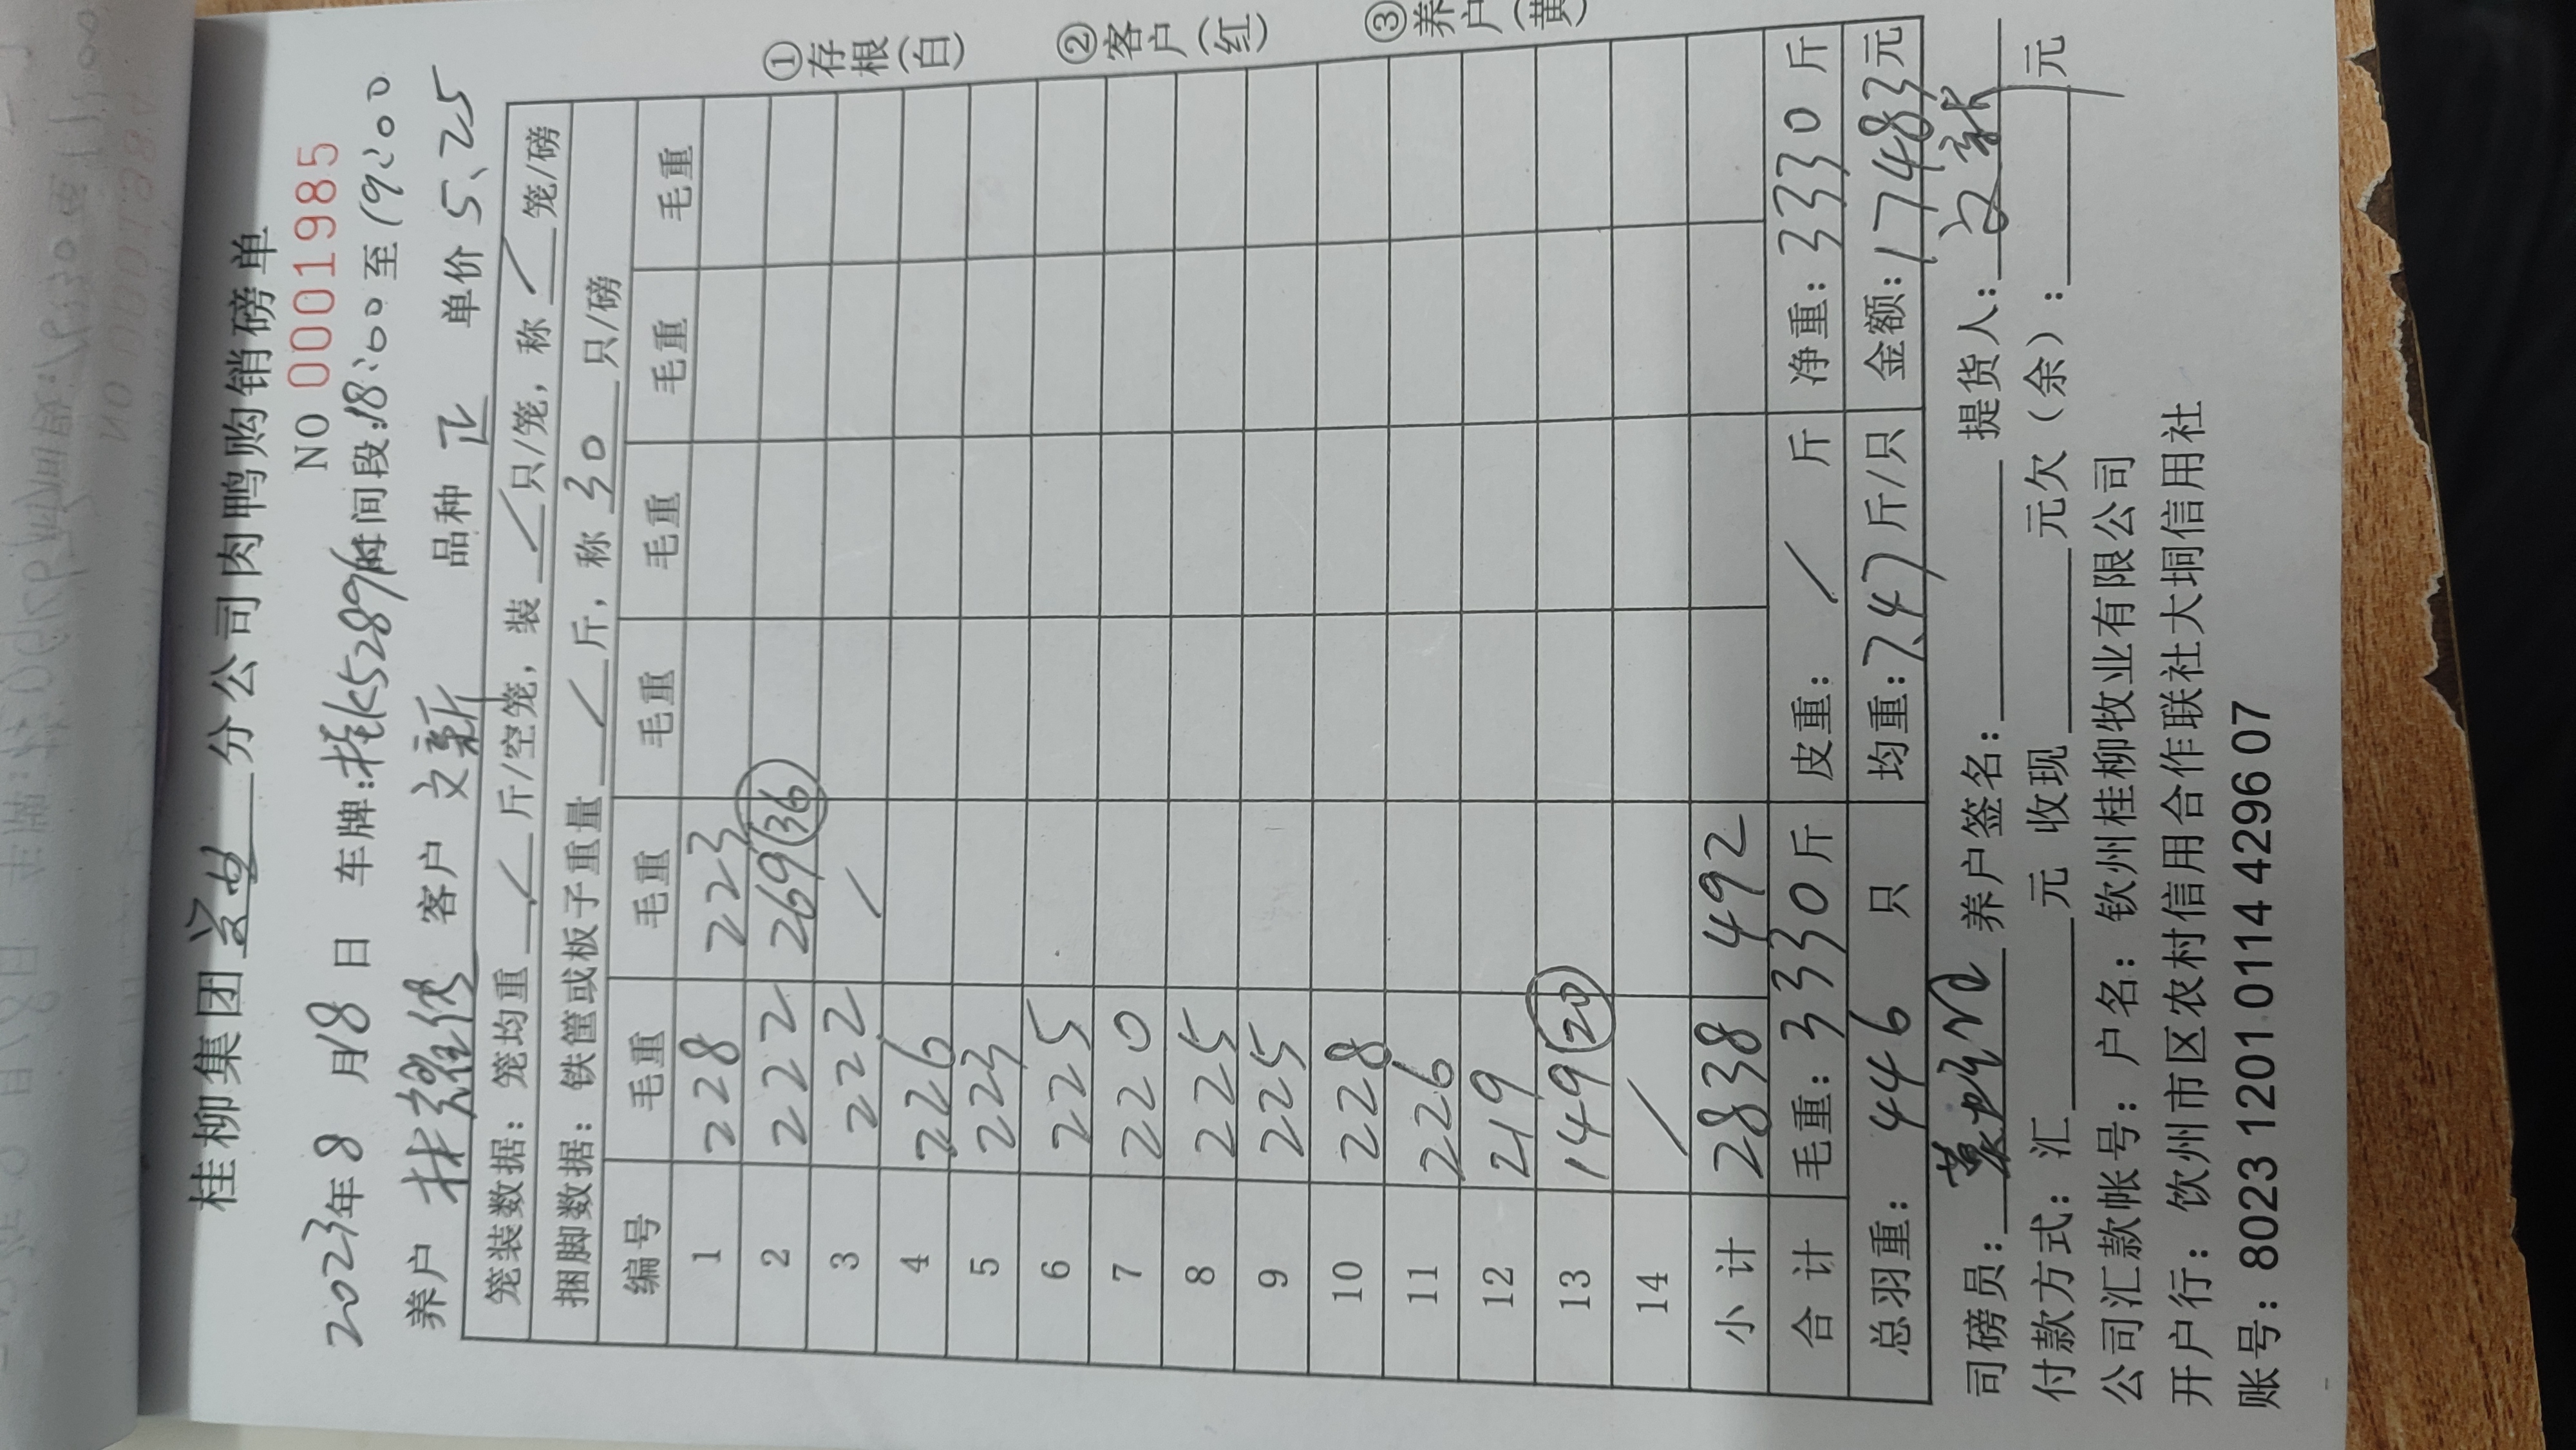 桂柳集团 分公司肉鸭购销磅单
NO 0001985
2023年8月18日 车牌:桂K5289 时间段:18:00至19:00
养户 林 客户 文新 品种 正 单价 5.25
笼装数据：笼均重 / 斤/空笼，装 / 只/笼，称 / 笼/磅
捆脚数据：铁筐或板子重量 / 斤，称 30 只/磅
编号 毛重 毛重 毛重 毛重 毛重 毛重
1 228 223
2 222 269 (36)
3 222 /
4 226
5 223
6 225
7 220
8 225
9 225
10 228
11 226
12 219
13 149 (20)
14 /
小计 2838 492
合计 毛重：3330斤 皮重：/ 斤 净重：3330斤
总羽重：446 只 均重：7.47斤/只 金额：17483元
司磅员： 养户签名： 提货人：文新
付款方式：汇 元 收现 元欠（余）： 元
公司汇款帐号：户名：钦州桂柳牧业有限公司
开户行：钦州市区农村信用合作联社大垌信用社
账号：8023 1201 0114 4296 07
①存根(白)
②客户(红)
③养户(黄